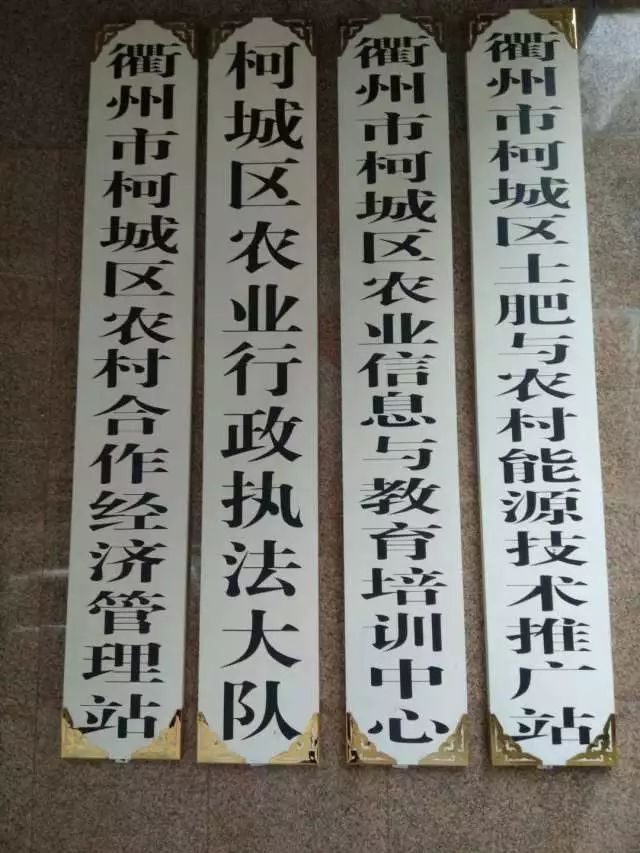 衢州市柯城区农村合作经济管理站
柯城区农业行政执法大队
衢州市柯城区农业信息与教育培训中心
衢州市柯城区土肥与农村能源技术推广站